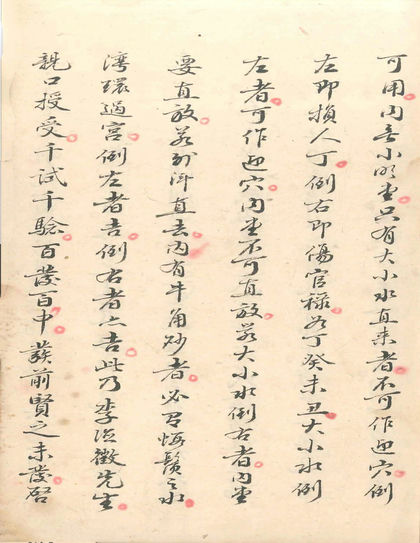 可用内无小明堂只有大小水直来者不可作迎穴倒
左即損人丁倒右即傷官禄若丁癸未丑大小水倒
左者可作迎穴内堂不可直放若大小水倒右者内堂
要直放若到洋直去内有牛角砂者必召悔鬓之水
湾环過宫倒左者吉倒右者亦吉此乃李淳徵先生
親口授受千試千驗百發百中發前賢之未發啓